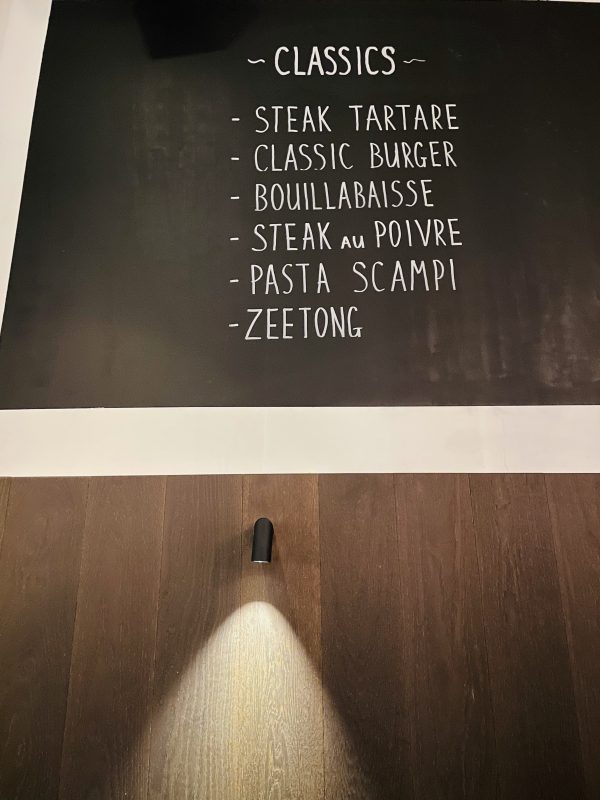 ~ CLASSICS ~
- STEAK TARTARE
- CLASSIC BURGER
- BOUILLABAISSE
- STEAK AU POIVRE
- PASTA SCAMPI
- ZEETONG